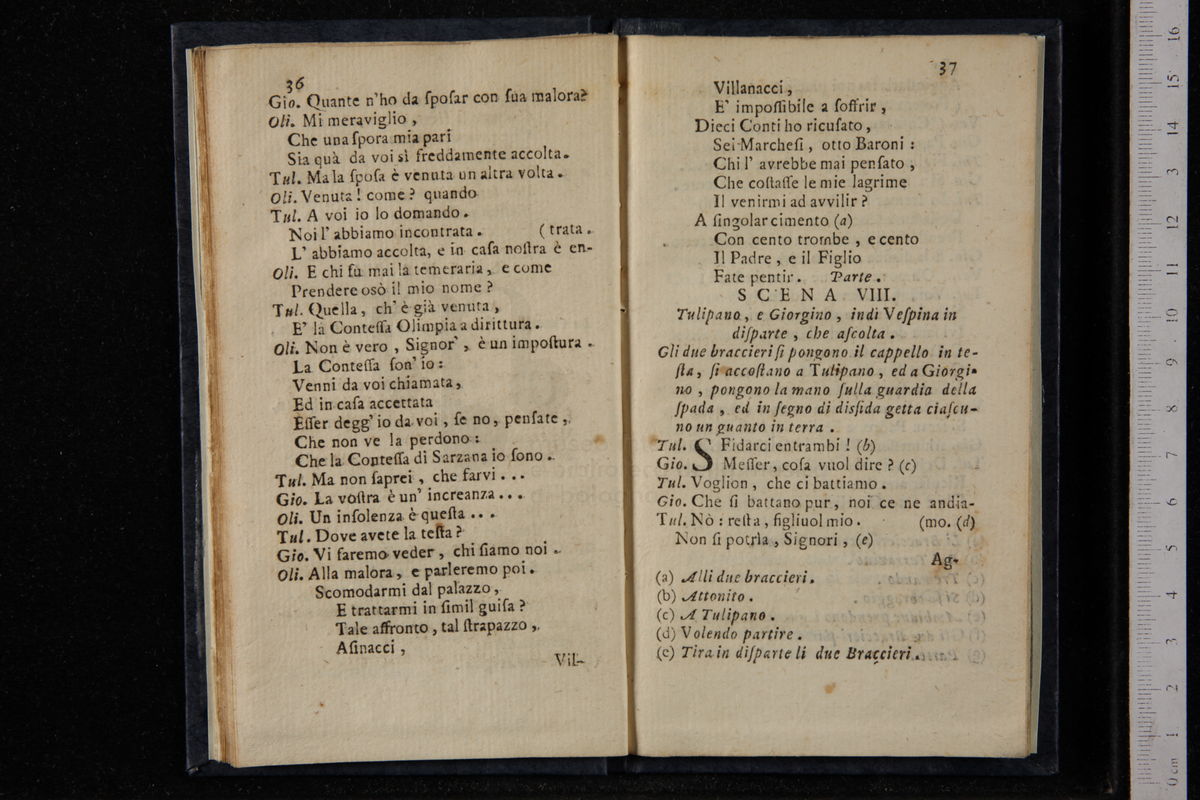 36
Gio. Quante n'ho da ſpoſar con ſua malora?
Oli. Mi meraviglio ,
Che una ſpora mia pari
Sia quà da voi sì freddamente accolta.
Tul. Ma la ſpoſa è venuta un altra volta .
Oli. Venuta ! come ? quando
Tul. A voi io lo domando .
Noi l' abbiamo incontrata . ( trata .
L' abbiamo accolta, e in caſa noſtra è en-
Oli. E chi fù mai la temeraria , e come
Prendere osò il mio nome ?
Tul. Quella, ch' è già venuta ,
E' la Conteſſa Olimpia a dirittura .
Oli. Non è vero , Signor' , è un impoſtura .
La Conteſſa ſon' io :
Venni da voi chiamata,
Ed in caſa accettata
Eſſer degg' io da voi , ſe no, penſate ,
Che non ve la perdono :
Che la Conteſſa di Sarzana io ſono .
Tul. Ma non ſaprei , che farvi . . .
Gio. La voſtra è un' increanza . . .
Oli. Un inſolenza è queſta . . .
Tul. Dove avete la teſta ?
Gio. Vi faremo veder , chi ſiamo noi .
Oli. Alla malora , e parleremo poi .
Scomodarmi dal palazzo ,
E trattarmi in ſimil guiſa ?
Tale affronto , tal ſtrapazzo ,
Aſinacci ,
Vil-
37
Villanacci ,
E' impoſſibile a ſoffrir ,
Dieci Conti ho ricuſato ,
Sei Marcheſi , otto Baroni :
Chi l' avrebbe mai penſato ,
Che coſtaſſe le mie lagrime
Il venirmi ad avvilir ?
A ſingolar cimento (a)
Con cento trombe , e cento
Il Padre , e il Figlio
Fate pentir . Parte .
SCENA VIII.
Tulipano , e Giorgino , indi Veſpina in
diſparte , che aſcolta .
Gli due braccieri ſi pongono il cappello in te-
ſta , ſi accoſtano a Tulipano , ed a Giorgi-
no , pongono la mano ſulla guardia della
ſpada , ed in ſegno di disfida getta ciaſcu-
no un guanto in terra .
Tul. SFidarci entrambi ! (b)
Gio. Meſſer, coſa vuol dire ? (c)
Tul. Voglion , che ci battiamo .
Gio. Che ſi battano pur , noi ce ne andia-
Tul. Nò : reſta , figliuol mio . (mo. (d)
Non ſi potrìa , Signori , (e)
Ag-
(a) Alli due braccieri .
(b) Attonito .
(c) A Tulipano .
(d) Volendo partire .
(e) Tira in diſparte li due Braccieri .